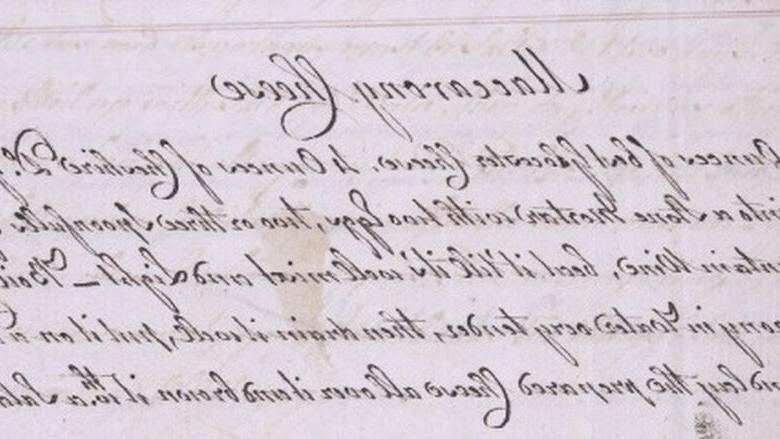 Maccarony Cheese
Ounces of best Glocester Cheese, 4 Ounces of Cheshire Do.
into a stone Mortar with two Eggs, two or three Spoonfulls
untain Wine, beat it 'till it's well mixt and light – Boil
rony in Water very tender, then drain it well, put it on a
nd lay the prepared Cheese all over it and brown it wth. a Sala